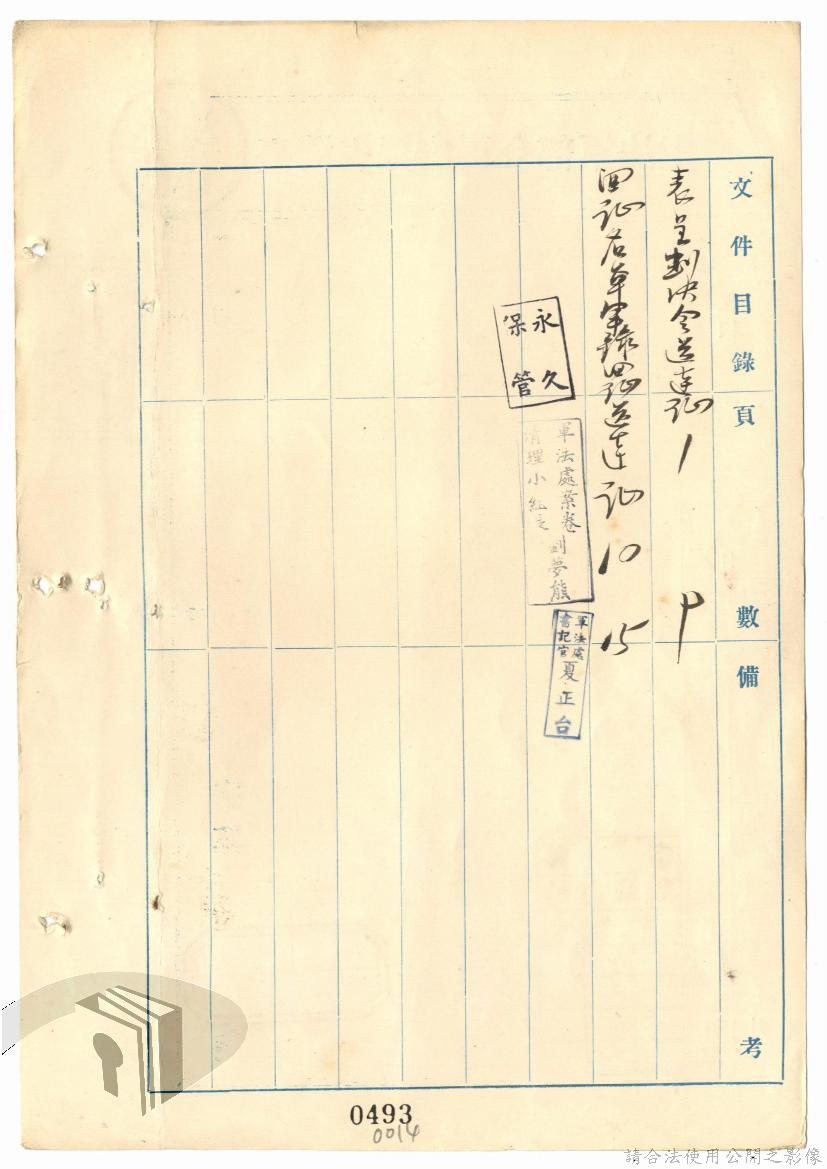 文件目錄 頁數 備考
表呈判決令送達证 1
回证 10 15
永久
保管
軍法處案卷
清理小組長 劉夢熊
軍法處
書記官 夏正台
0493
0014
請合法使用公開之影像